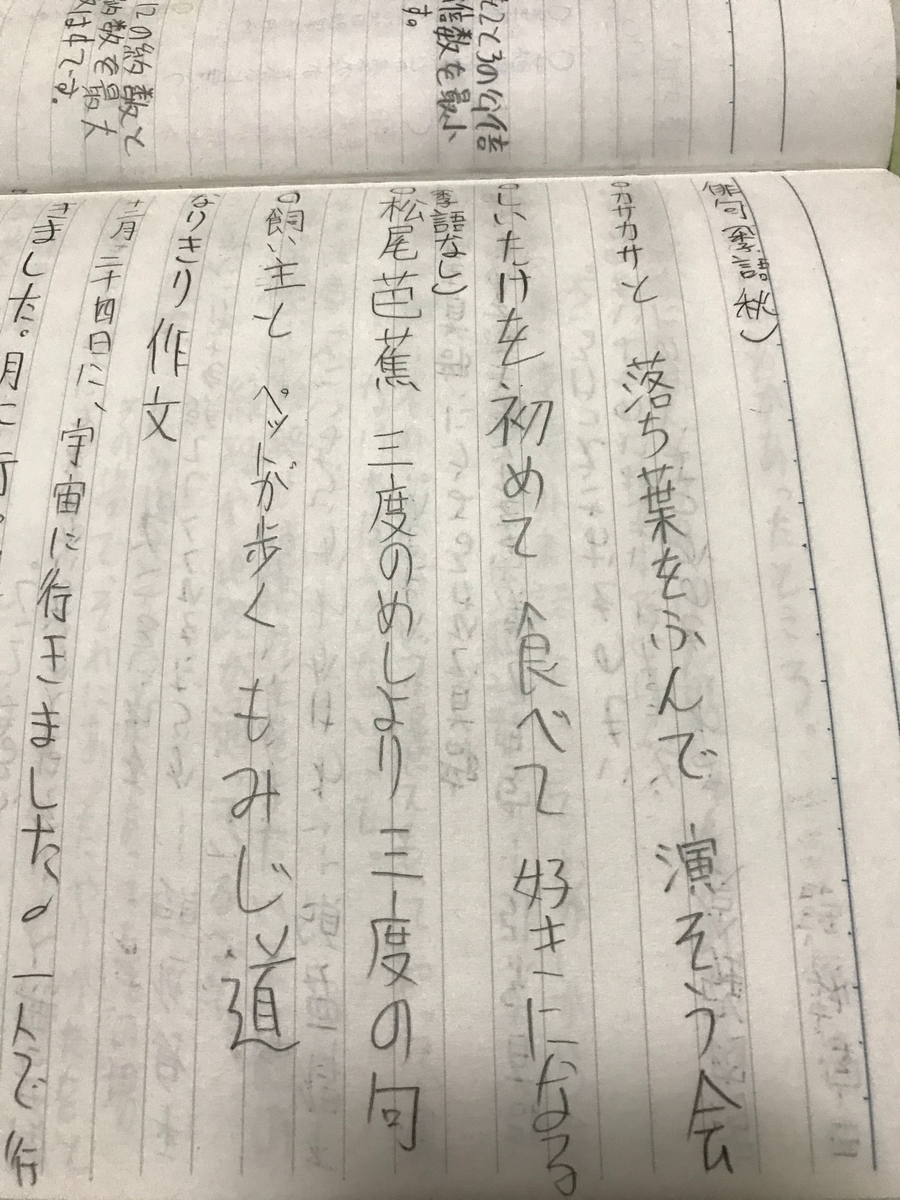 俳句(季語 秋)
。カサカサと 落ち葉をふんで 演そう会
。しいたけを初めて 食べて 好きになる
(季語なし)
。松尾芭蕉 三度のめしより 三度の句
。飼い主と ペットが歩く もみじ道
なりきり作文
十二月二十四日に、宇宙に行きました。一人で行
きました。月に行
2と3の公倍
倍数を最小
す。
12の約数と
約数を最大